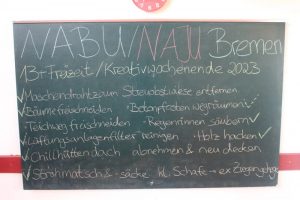 NABU/NAJU Bremen
13+ Freizeit / Kreativwochenende 2023
✓ Maschendrahtzaun Streuobstwiese entfernen
✓ Bäume freischneiden · Betonpfosten wegräumen ✓
· Teichweg freischneiden · Regenrinnen säubern ✓
✓ Lüftungsanlagenfilter reinigen · Holz hacken ✓
✓ Chillhüttendach abnehmen & neu decken
✓ Strohmatsch & -säcke kl. Schafe- ex Ziegengehege